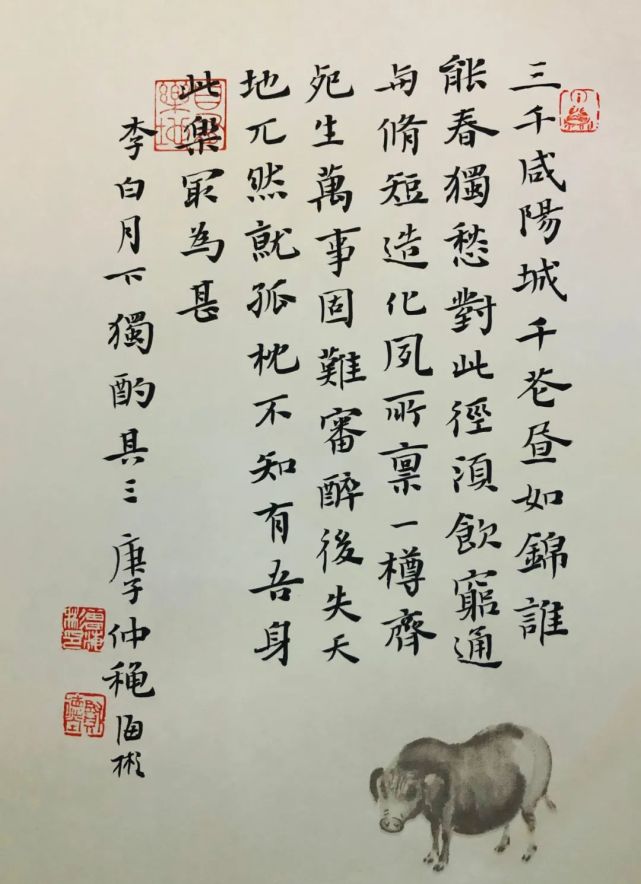 三千咸陽城千苍昼如錦誰
能春獨愁對此徑須飲窮通
与脩短造化夙所禀一樽齊
死生萬事固難審醉後失天
地兀然就孤枕不知有吾身
此樂冣為甚
李白月下獨酌其三 庚子仲龝海彬